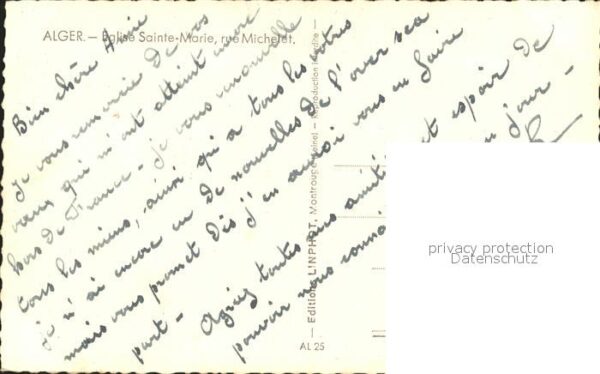 ALGER. — Eglise Sainte-Marie, rue Michelet.
Bien chère Amie
Je vous remercie de vos
vœux qui m'ont atteint
hors de France - Je vous renouvelle
tous les miens, ainsi qu'à tous les vôtres
Je n'ai encore eu de nouvelles de l'over sea
mais vous promet dès j'en aurai vous en faire
part -
Agréez toutes mes amitiés et espoir de
pouvoir nous jour -
Editions LINPHOT, Montrouge (Seine) — Reproduction interdite
AL 25
privacy protection
Datenschutz